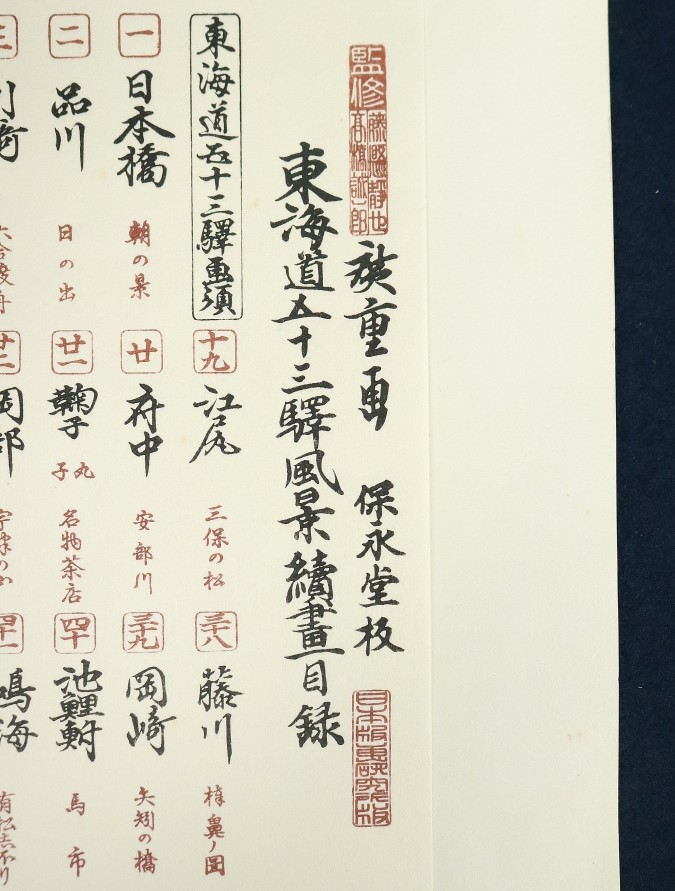 監修 藤懸靜也 高橋誠一郎
廣重画 保永堂板
日本版画研究所板
東海道五十三驛風景續畫目録
東海道五十三驛画須
十九 江尻 三保の松
三十八 藤川 棒鼻ノ圖
一 日本橋 朝の景
廿 府中 安部川
三十九 岡崎 矢矧の橋
二 品川 日の出
廿一 鞠子 丸子 名物茶店
四十 池鯉鮒 馬市
三
鳴海